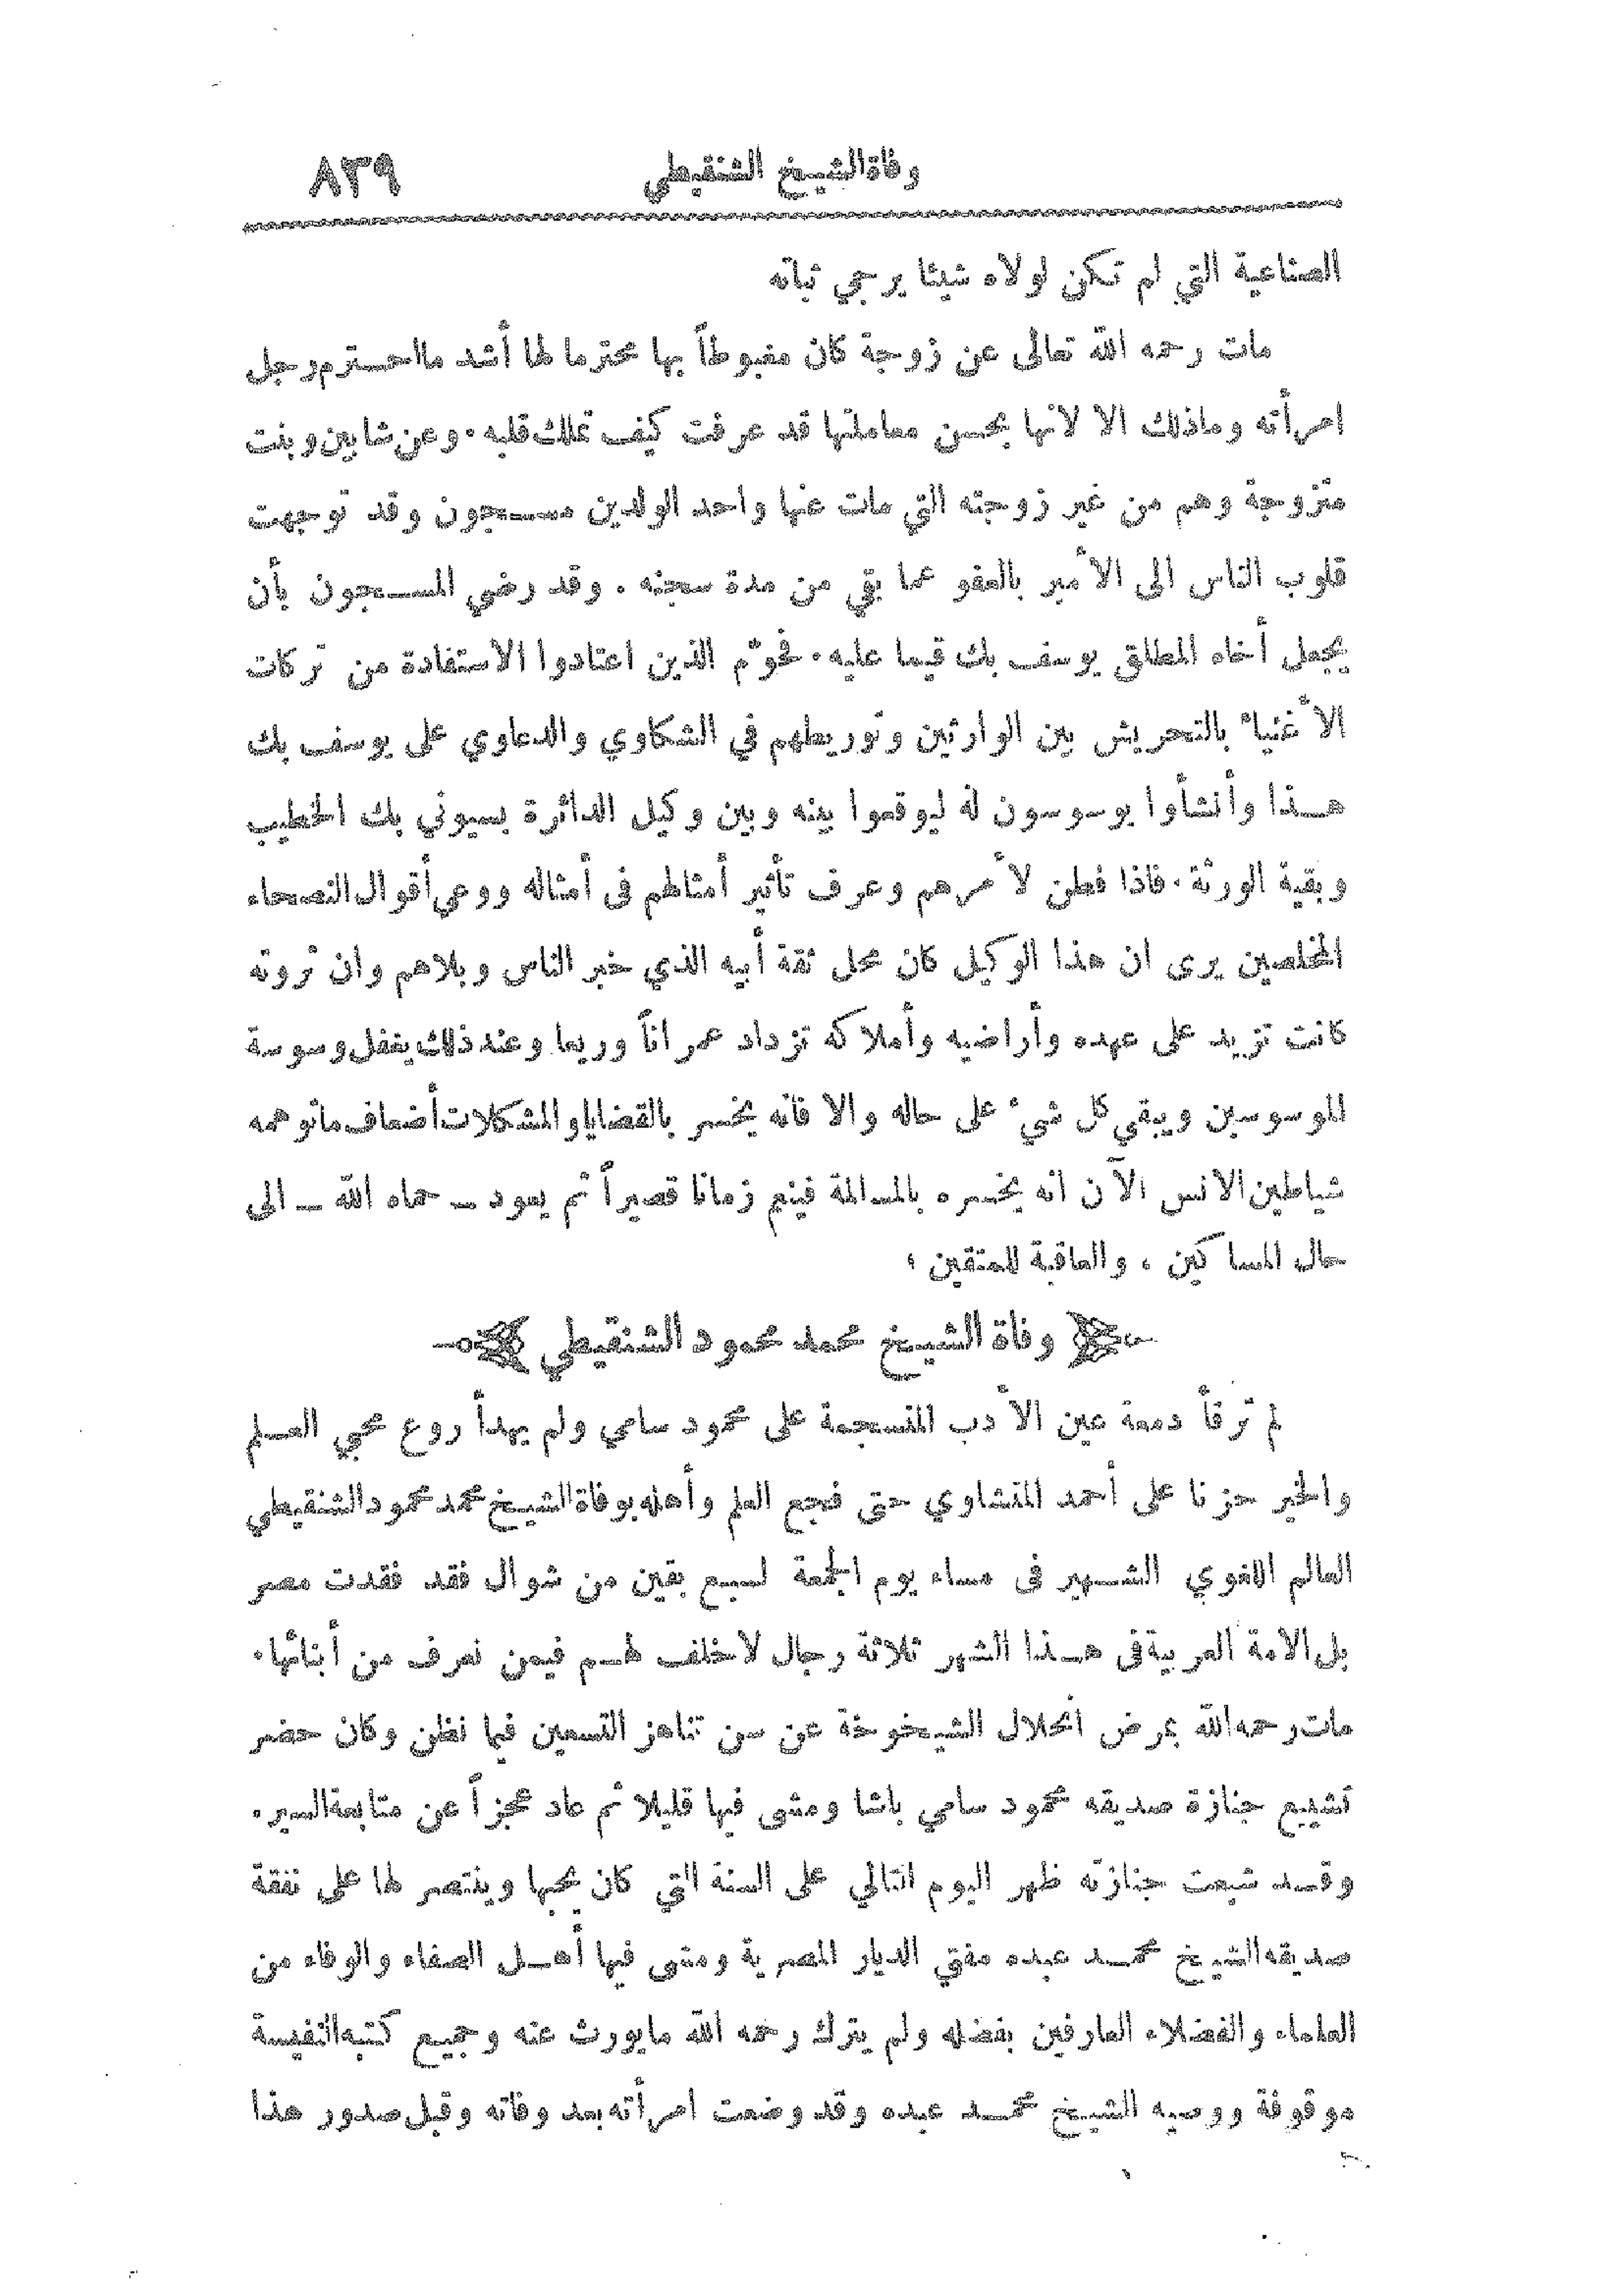 وفاة الشيخ الشنقيطي ٨٣٩
الصناعية التي لم تكن لولاه شيئا يرجي ثباته
مات رحمه الله تعالى عن زوجة كان مغبوطاً بها محترما لها أشد مااحترم رجل
امرأته وماذلك الا لانها بحسن معاملتها قد عرفت كيف تملك قلبه. وعن شابين وبنت
متزوجة وهم من غير زوجته التي مات عنها واحد الولدين مسجون وقد توجهت
قلوب الناس الى الأمير بالعفو عما بقي من مدة سجنه. وقد رضي المسجون بأن
يجعل أخاه المطلق يوسف بك قيما عليه. فحوّم الذين اعتادوا الاستفادة من تركات
الأغنياء بالتحريش بين الوارثين وتوريطهم في الشكاوي والدعاوي على يوسف بك
هذا وأنشأوا يوسوسون له ليوقعوا بينه وبين وكيل الدائرة بسيوني بك الخطيب
وبقية الورثة. فاذا فطن لأمرهم وعرف تأثير أمثالهم فى أمثاله ووعي أقوال النصحاء
المخلصين يرى ان هذا الوكيل كان محل ثقة أبيه الذي خبر الناس وبلاهم وان ثروته
كانت تزيد على عهده وأراضيه وأملاكه تزداد عمراناً وريعا وعند ذلك يغفل وسوسة
الموسوسين ويبقي كل شيء على حاله والا فانه يخسر بالقضايا والمشكلات أضعاف ماتوهمه
شياطين الانس الآن انه يخسره بالمسالمة فينعم زمانا قصيراً ثم يعود ــ حماه الله ــ الى
حال المساكين، والعاقبة للمتقين؛
وفاة الشيخ محمد محمود الشنقيطي
لم ترقأ دمعة عين الأدب المنسجمة على محمود سامي ولم يهدأ روع محبي العلم
والخير حزنا على أحمد المنشاوي حتى فجع العلم وأهله بوفاة الشيخ محمد محمود الشنقيطي
العالم اللغوي الشهير فى مساء يوم الجمعة لسبع بقين من شوال فقد فقدت مصر
بل الامة العربية فى هذا الشهر ثلاثة رجال لاخلف لهم فيمن نعرف من أبنائها.
مات رحمه الله بمرض انحلال الشيخوخة عن سن تناهز التسعين فيما نظن وكان حضر
تشييع جنازة صديقه محمود سامي باشا ومشى فيها قليلا ثم عاد عجزاً عن متابعة السير.
وقد شيعت جنازته ظهر اليوم التالي على السنة التي كان يحبها وينتصر لها على نفقة
صديقه الشيخ محمد عبده مفتي الديار المصرية ومشى فيها أهل الصفاء والوفاء من
العلماء والفضلاء العارفين بفضله ولم يترك رحمه الله مايورث عنه وجميع كتبه النفيسة
موقوفة ووصيه الشيخ محمد عبده وقد وضعت امرأته بعد وفاته وقبل صدور هذا